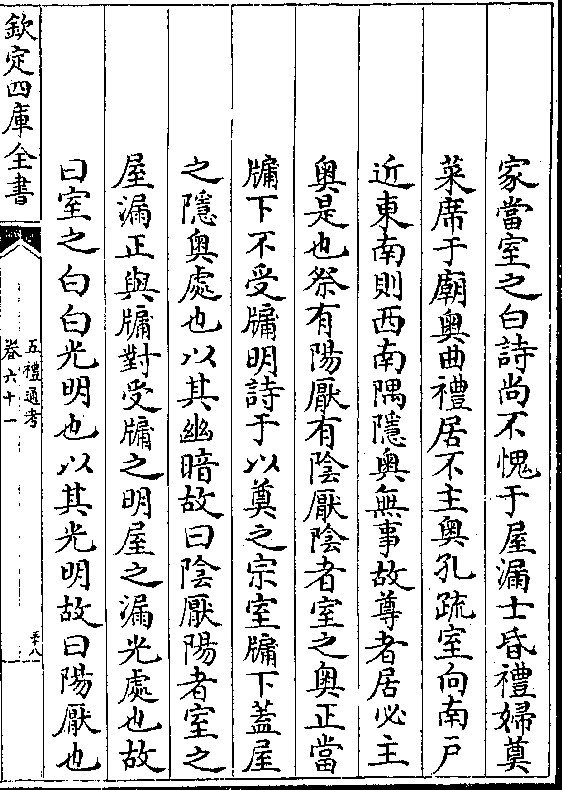 家當室之白詩尚不愧于屋漏士昏禮婦奠
菜席于廟奧曲禮居不主奧孔疏室向南戸
近東南則西南隅隱奧無事故尊者居必主
奧是也祭有陽厭有陰厭陰者室之奧正當
牗下不受牗明詩于以奠之宗室牗下蓋屋
之隱奧處也以其幽暗故曰陰厭陽者室之
屋漏正與牗對受牗之明屋之漏光處也故
曰室之白白光明也以其光明故曰陽厭也
欽定四庫全書
五禮通考
卷六十一